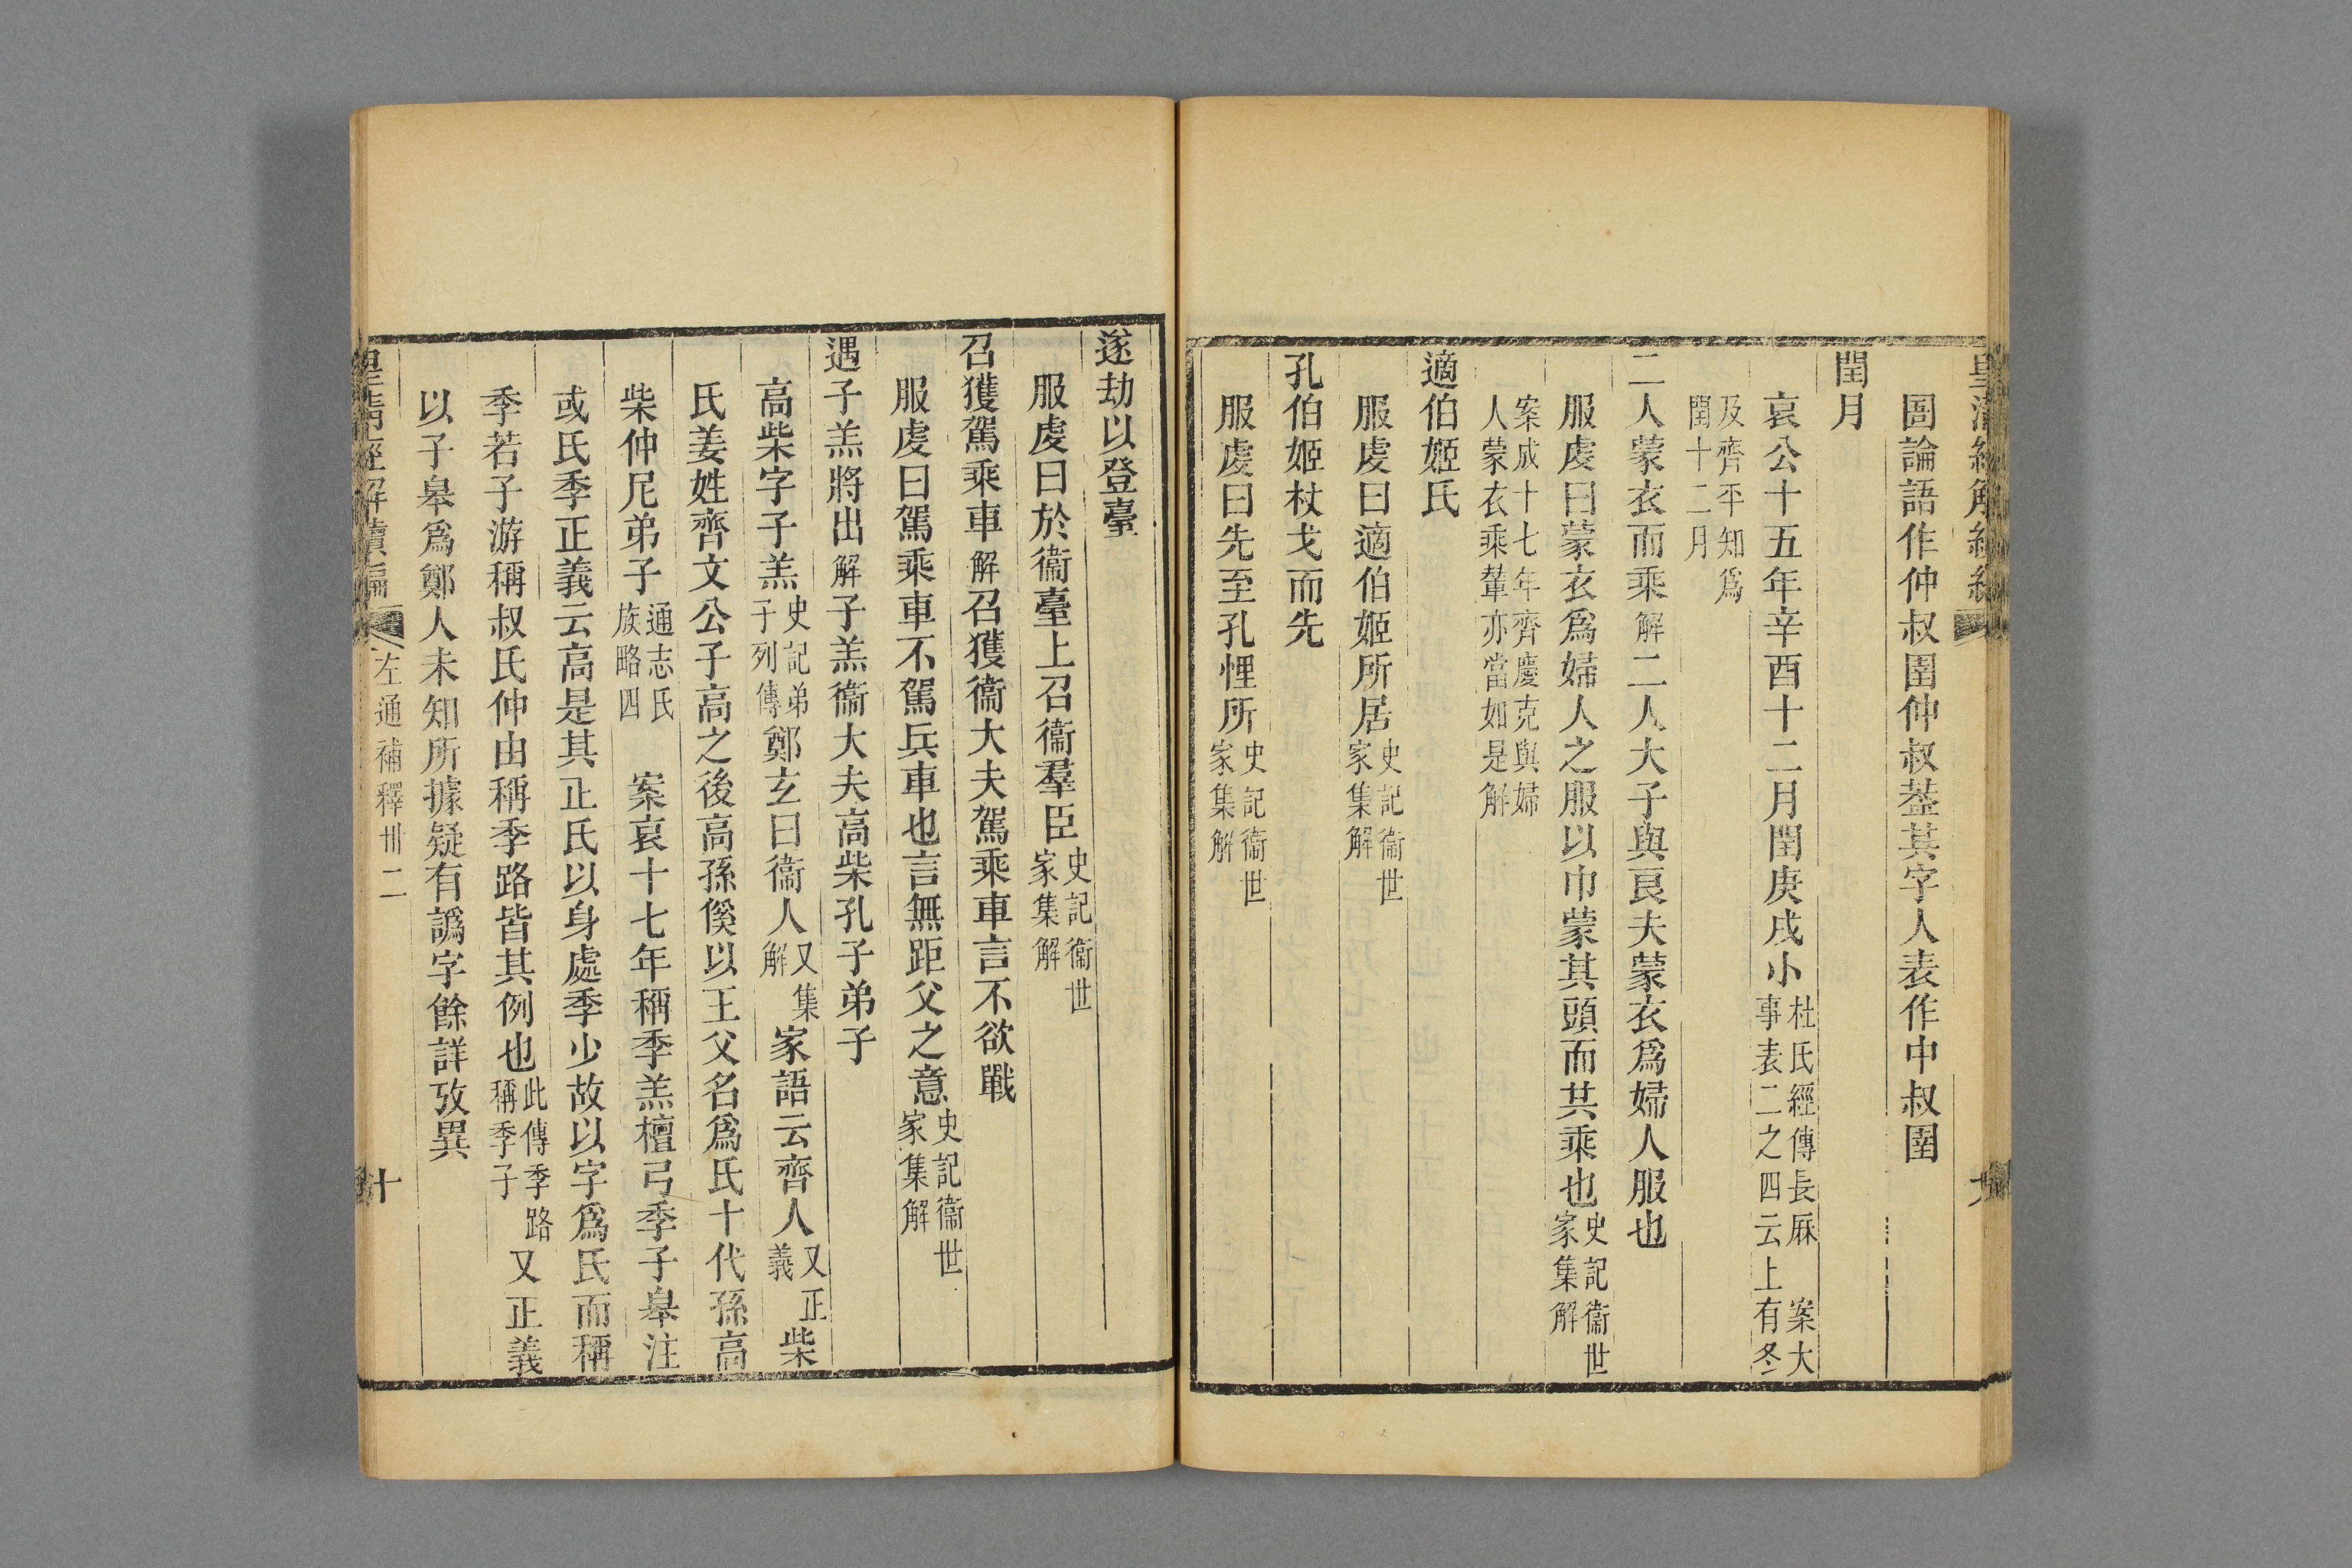 圄論語作仲叔圉仲叔葢其字人表作中叔圉
閏月
哀公十五年辛酉十二月閏庚戌小杜氏經傳長厤 案大事表二之四云上有冬
及齊平知爲閏十二月
二人蒙衣而乘解二人大子與良夫蒙衣爲婦人服也
服虔曰蒙衣爲婦人之服以巾蒙其頭而共乘也史記衞世家集解
案成十七年齊慶克與婦人蒙衣乘輦亦當如是解
適伯姬氏
服虔曰適伯姬所居史記衞世家集解
孔伯姬杖戈而先
服虔曰先至孔悝所史記衞世家集解
遂劫以登臺
服虔曰於衞臺上召衞羣臣史記衞世家集解
召獲駕乘車解召獲衞大夫駕乘車言不欲戰
服虔曰駕乘車不駕兵車也言無距父之意史記衞世家集解
遇子羔將出解子羔衞大夫高柴孔子弟子
高柴字子羔史記弟子列傳鄭玄曰衞人又集解家語云齊人又正義柴
氏姜姓齊文公子高之後高孫傒以王父名爲氏十代孫高
柴仲尼弟子通志氏族略四 案哀十七年稱季羔檀弓季子皋注
或氏季正義云高是其正氏以身處季少故以字爲氏而稱
季若子游稱叔氏仲由稱季路皆其例也此傳季路稱季子又正義
以子皋爲鄭人未知所據疑有譌字餘詳攷異
皇清經解續編 左通補釋卅二 十